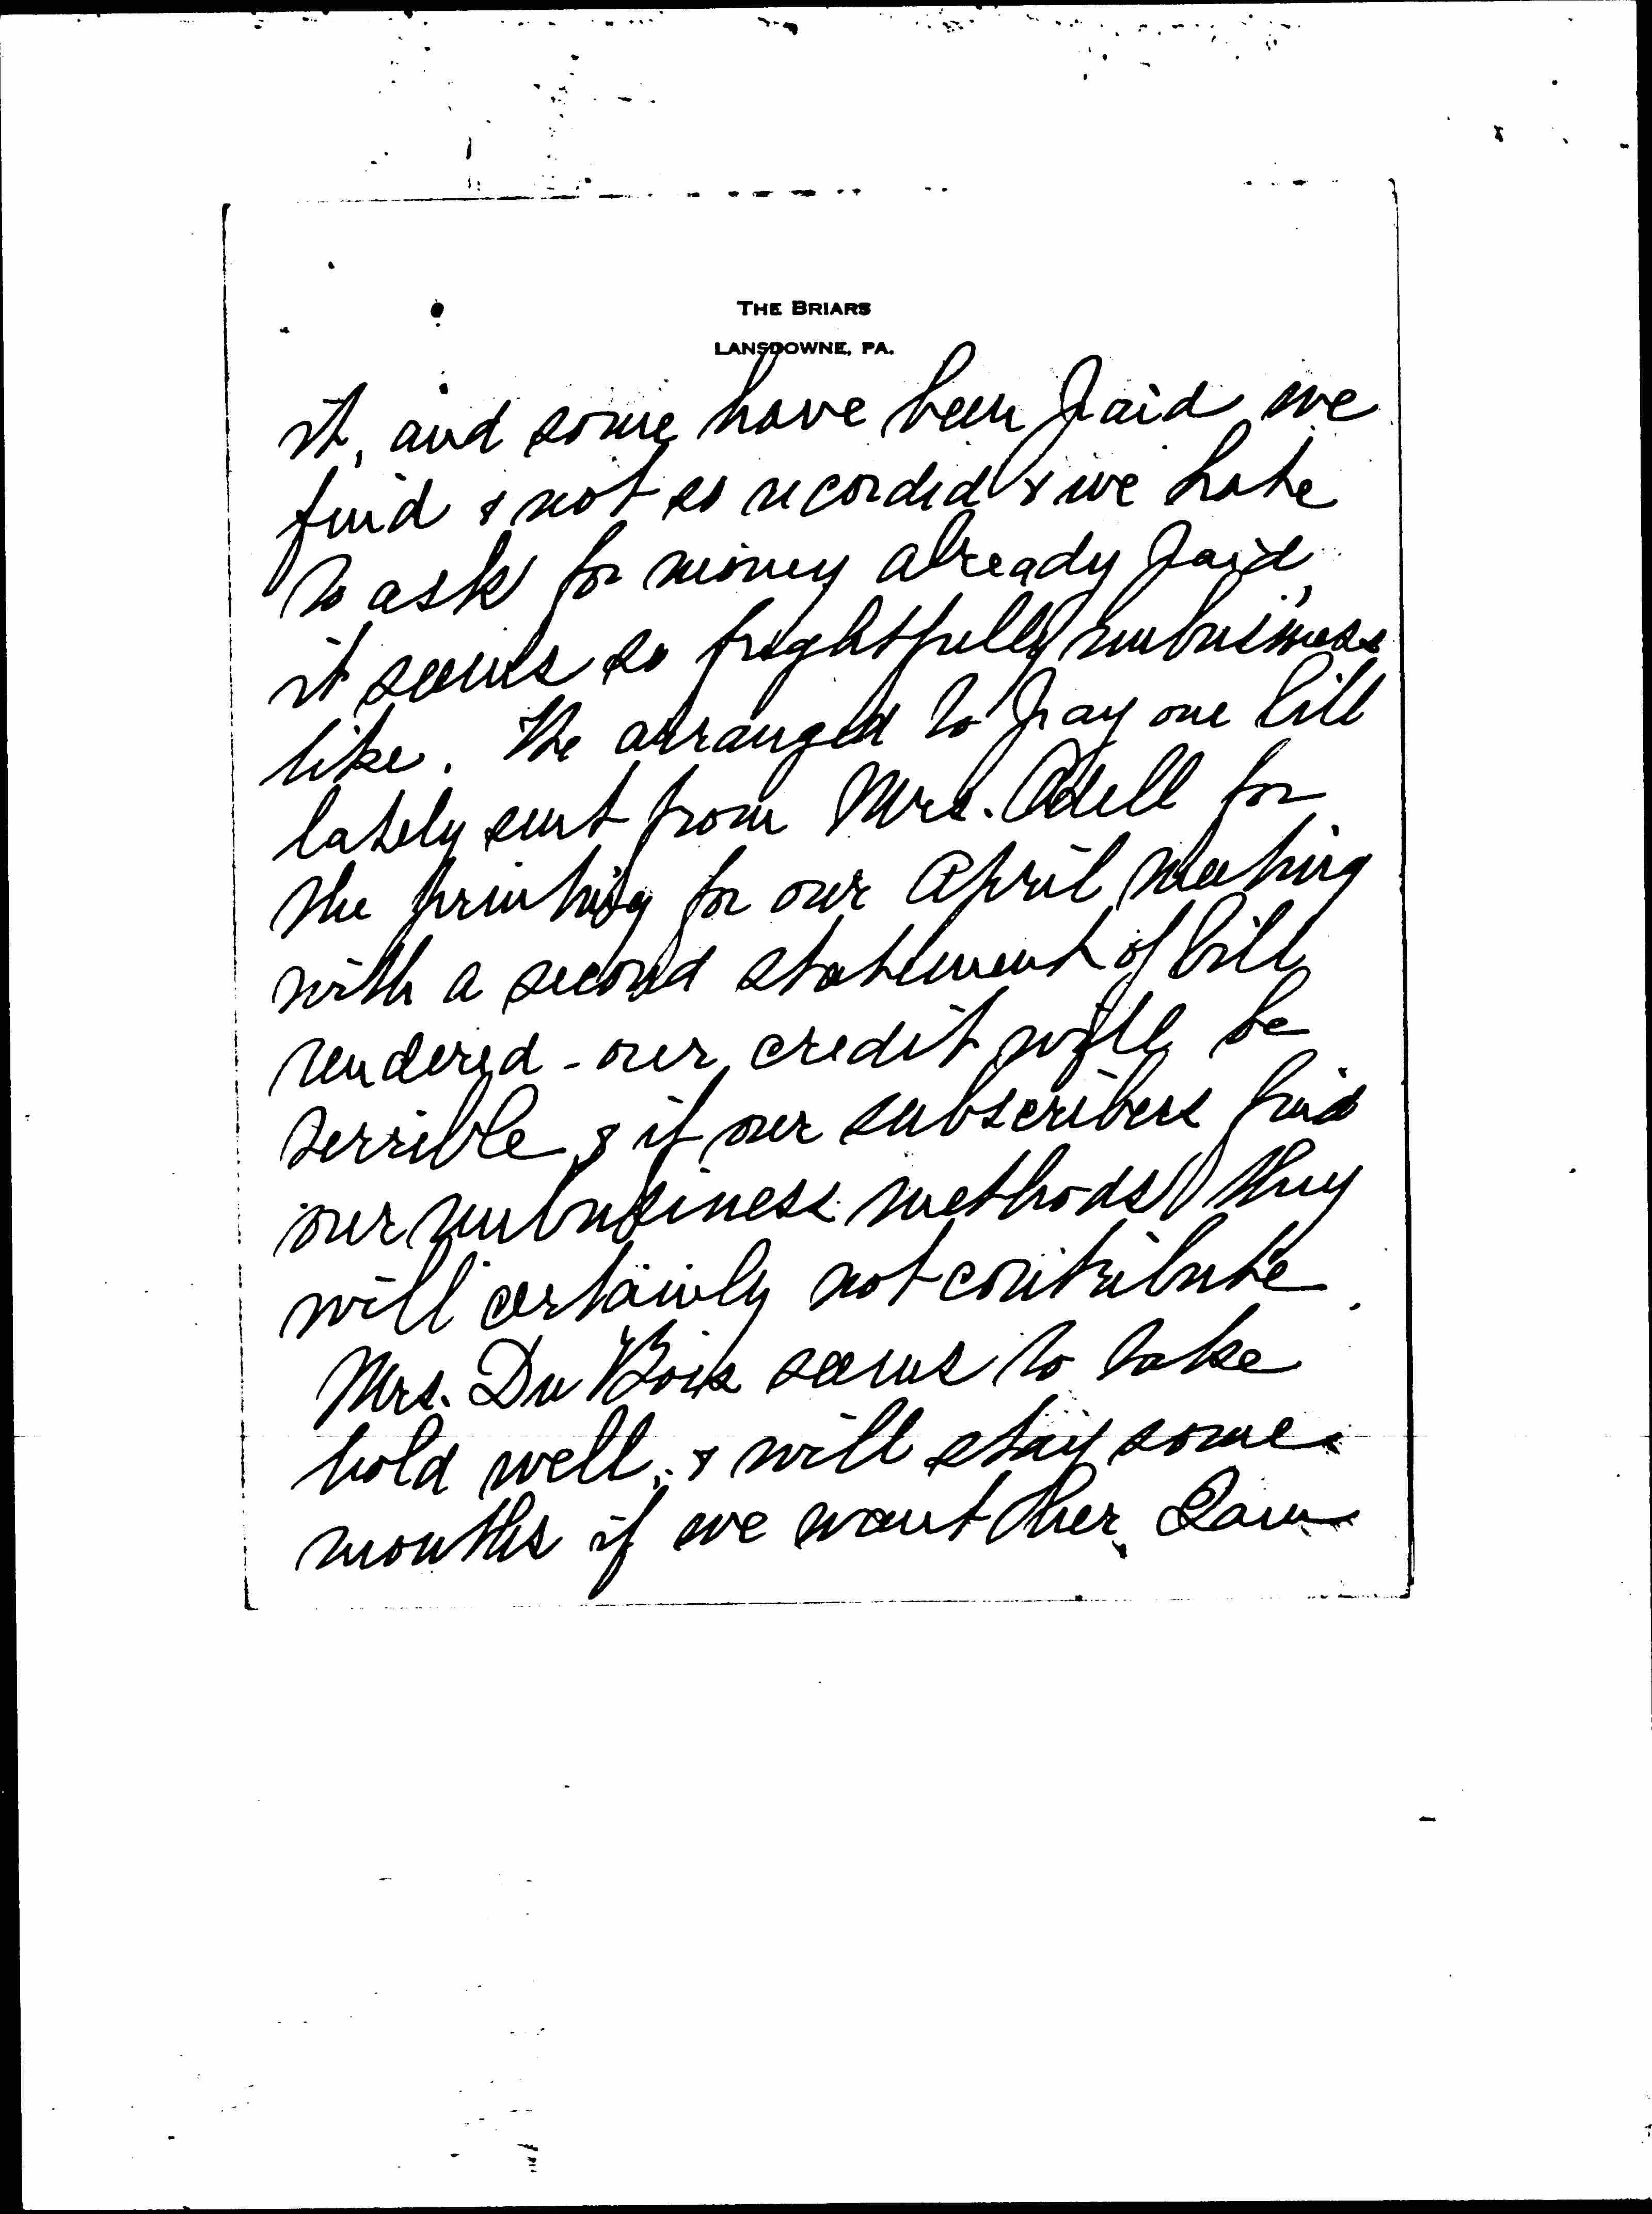 THE BRIARS
LANSDOWNE, PA.
it, and some have been paid we
find & not so recorded & we hate
to ask for money already paid,
it seems so frightfully unbusiness
like. We arranged to pay one bill
lately sent from Mrs. Odell for
the printing for our April meeting
with a second statement of bill
rendered - our credit will be
terrible & if our subscribers find
our unbusiness methods they
will certainly not contribute.
Mrs. Du Bois seems to take
hold well, & will stay some
months if we want her. I am